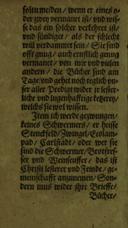 soltu melden / wenn er eines o-
der zwey vermanet ist / vnd wis-
se das ein solcher verkeret ist /
vnd sündiget / als der schlecht
wil verdammet sein / Sie sind
offt gnug / auch ernstlich gnug
vermanet / von mir vnd vielen
andern / die Bücher sind am
Tage vnd gehet noch teglich
aller Predigt wider ir lester-
liche vnd lügenhafftige
welchs sie wol wissen.
Item ich werde gezwungen
keines Schwermers / er heisse
Stenckfeld / Zwingel / Ecolam-
pad / Carlstadt / oder wer sie
sind die Schwermer / Brotfres-
ser vnd Weinseuffer / das ist
Christi lesterer vnd feinde / ge-
meinschafft annemen / Son-
dern mus wider ihre Brieffe /
Bücher /